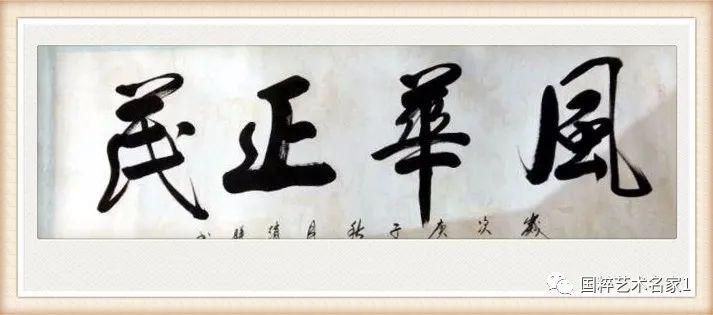 風華正茂
歲次庚子秋月
国粹艺术名家1